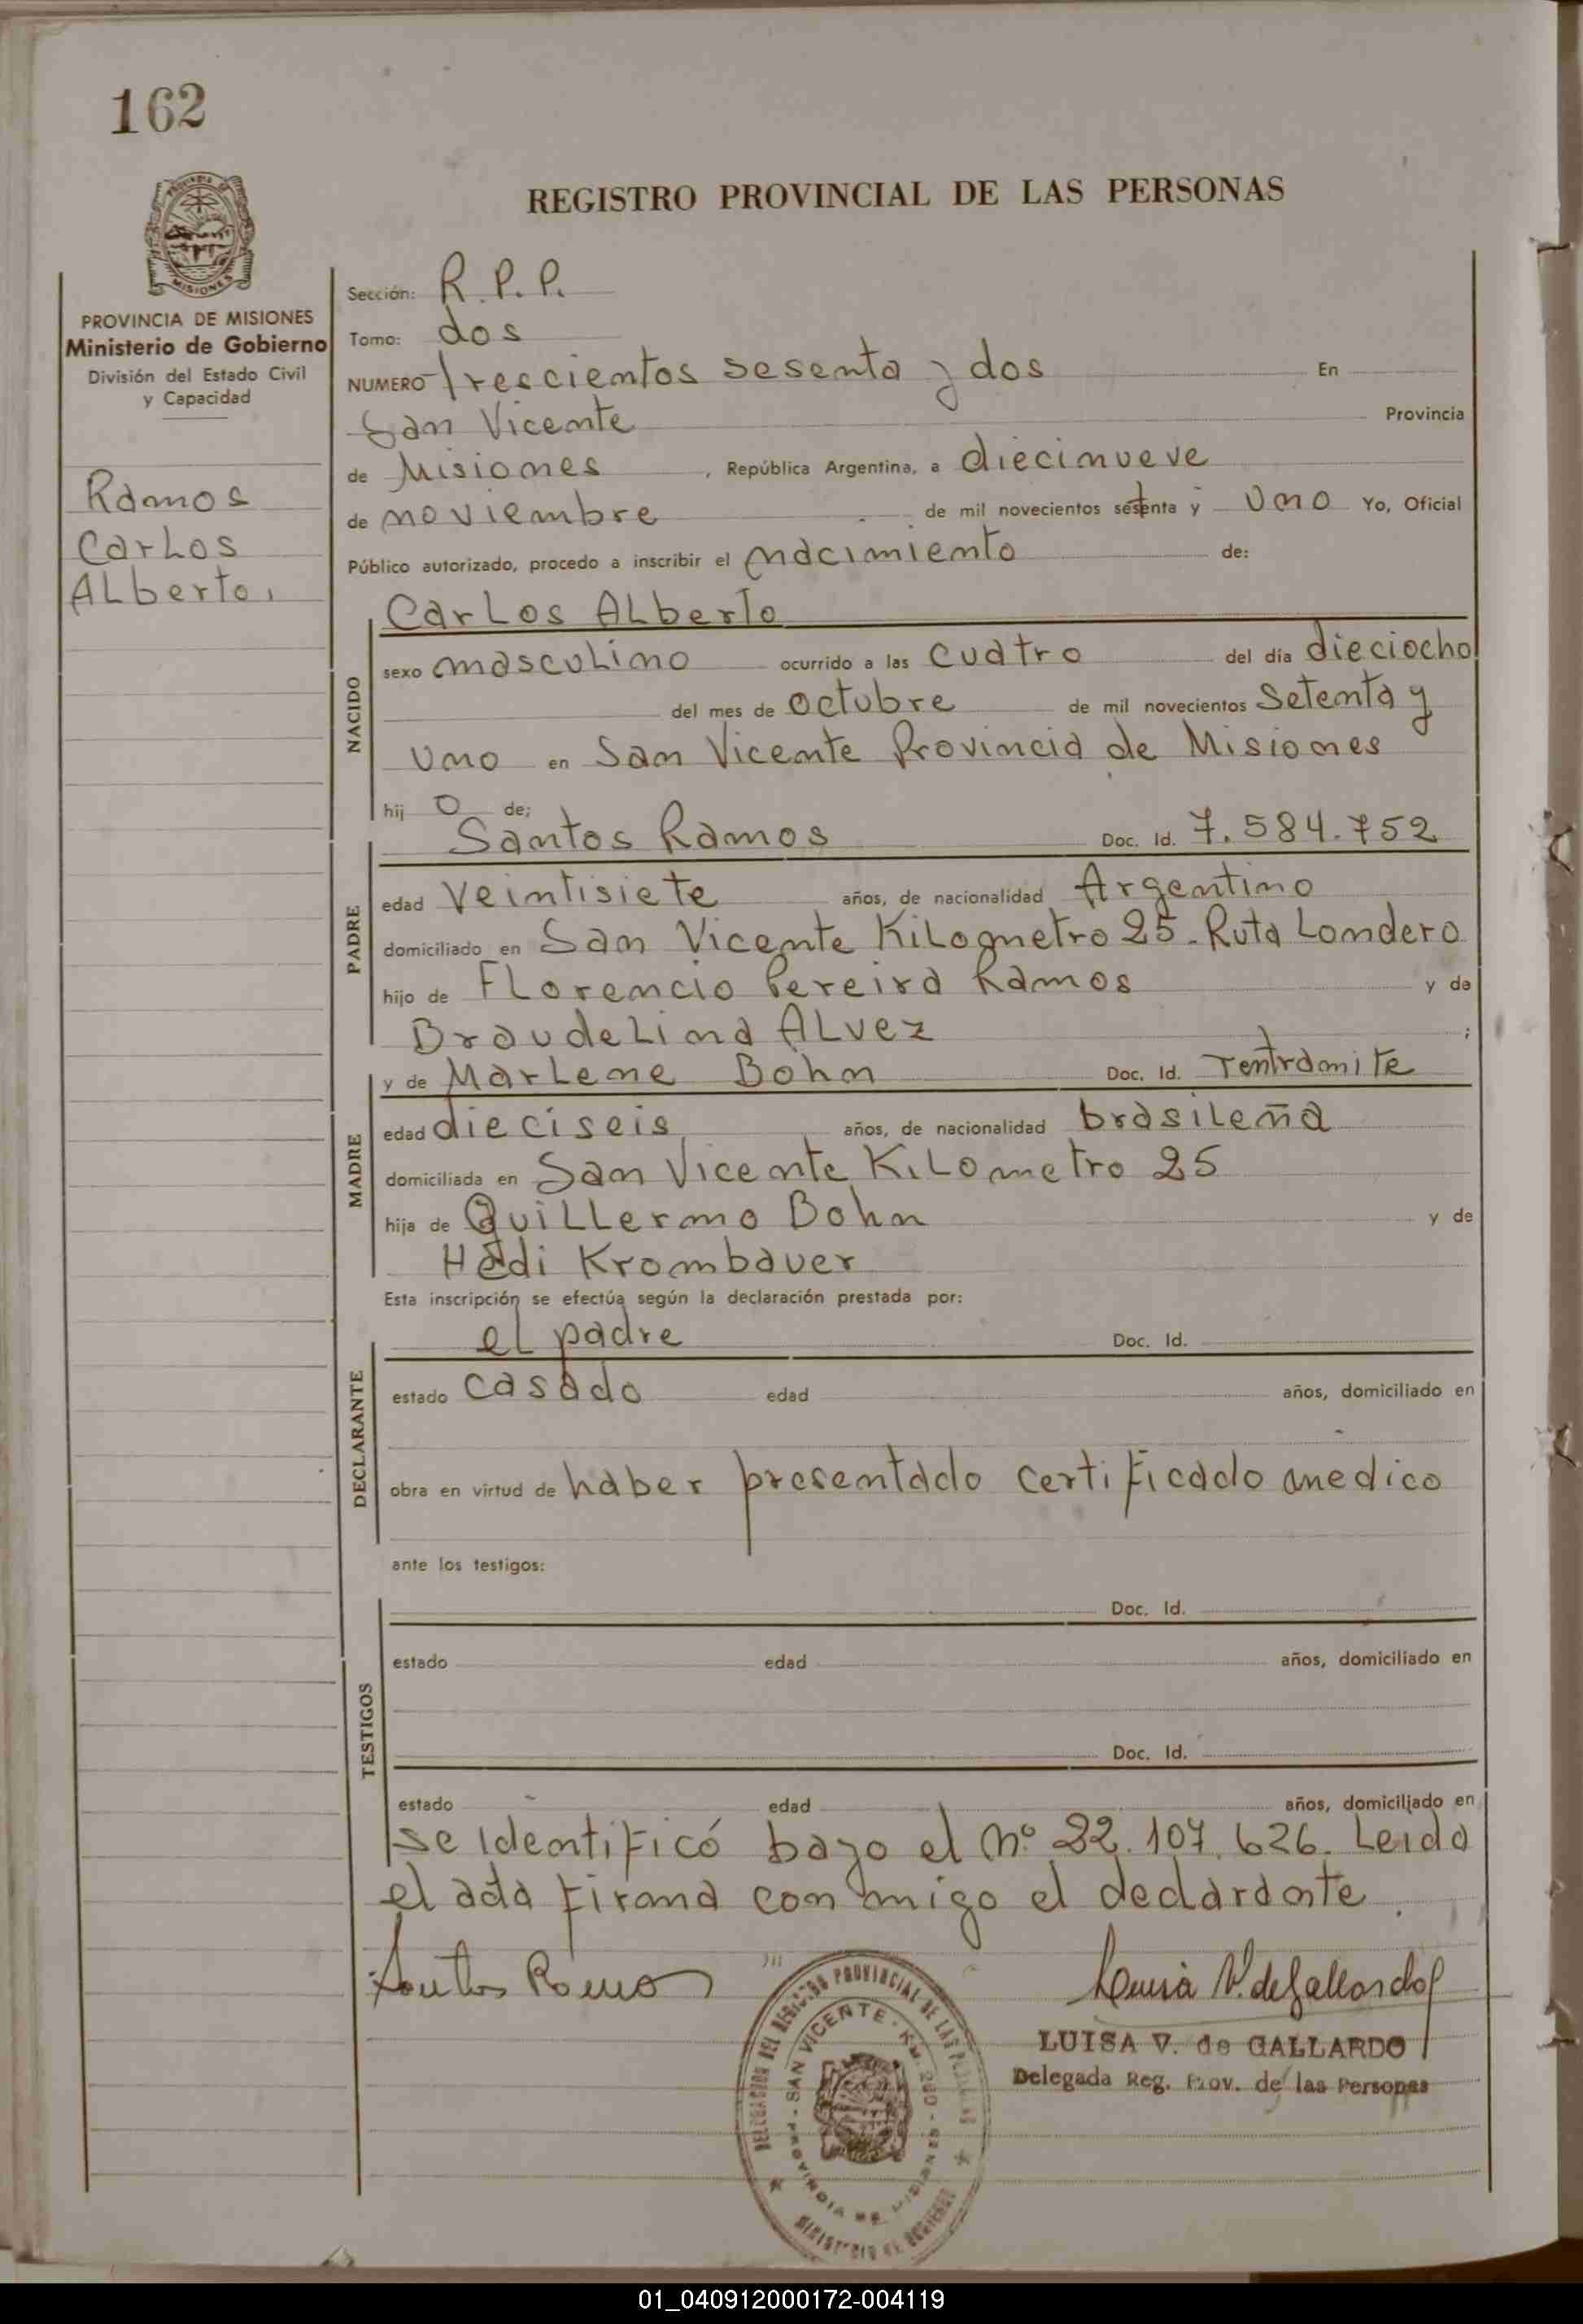 162
REGISTRO PROVINCIAL DE LAS PERSONAS
MISIONES
PROVINCIA DE MISIONES
Ministerio de Gobierno
División del Estado Civil
y Capacidad
Ramos
Carlos
Alberto.
Sección: R.P.P.
Tomo: dos
NUMERO Trescientos sesenta y dos En
San Vicente Provincia
de Misiones, República Argentina, a diecinueve
de noviembre de mil novecientos setenta y uno Yo, Oficial
Público autorizado, procedo a inscribir el nacimiento de:
NACIDO
Carlos Alberto
sexo masculino ocurrido a las cuatro del día dieciocho
del mes de octubre de mil novecientos setenta y
uno en San Vicente Provincia de Misiones
hij o de;
PADRE
Santos Ramos Doc. Id. 7.584.752
edad veintisiete años, de nacionalidad Argentino
domiciliado en San Vicente Kilometro 25. Ruta Londero
hijo de Florencio Pereira Ramos y de
Braudelina Alvez ;
MADRE
y de Marlene Bohn Doc. Id. Tentramite
edad dieciseis años, de nacionalidad brasileña
domiciliada en San Vicente Kilometro 25
hija de Guillermo Bohn y de
Hedi Krombauer
Esta inscripción se efectúa según la declaración prestada por:
DECLARANTE
el padre Doc. Id.
estado casado edad años, domiciliado en
obra en virtud de haber presentado certificado medico
ante los testigos:
TESTIGOS
Doc. Id.
estado edad años, domiciliado en
Doc. Id.
estado edad años, domiciliado en
se identificó bajo el nº 22.107.626. Leida
el acta firma con migo el declarante.
Santos Ramos
Luisa V. de Gallardo
LUISA V. de GALLARDO
Delegada Reg. Prov. de las Personas
DELEGACION DEL REGISTRO PROVINCIAL DE LAS PERSONAS
SAN VICENTE - KM. 280
PROVINCIA DE MISIONES
MINISTERIO DE GOBIERNO
01_040912000172-004119